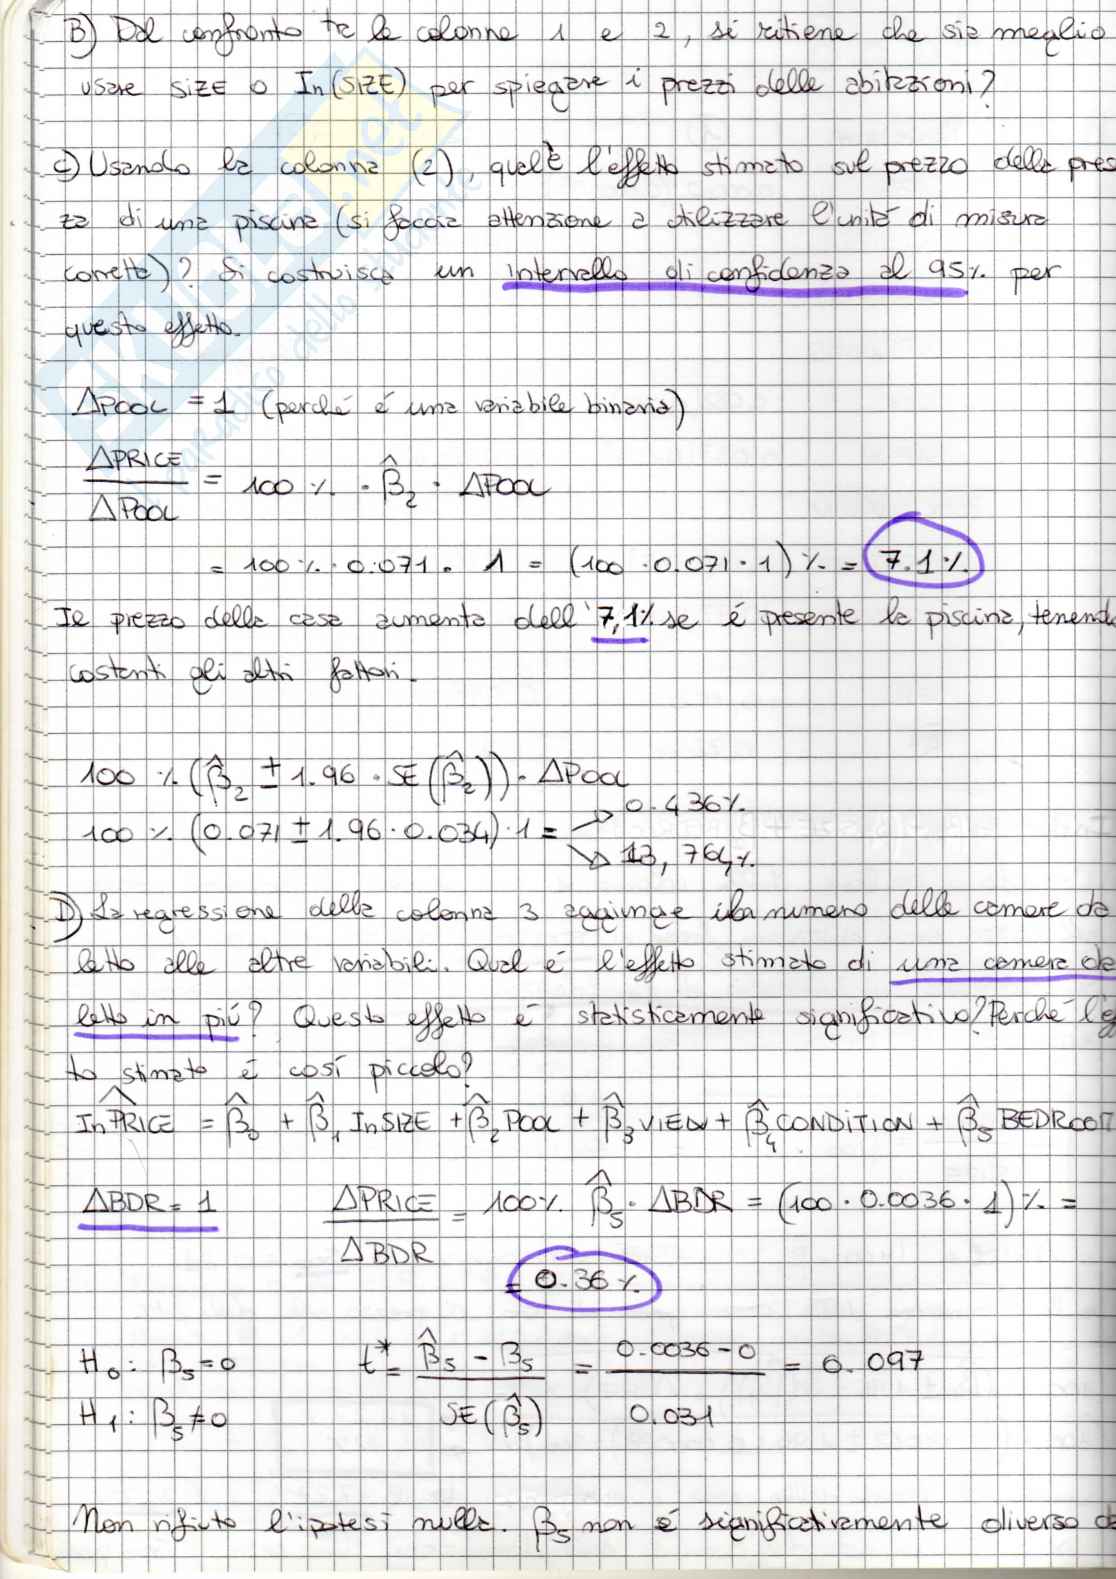 B) Dal confronto tra le colonne 1 e 2, si ritiene che sia meglio
usare SIZE o In(SIZE) per spiegare i prezzi delle abitazioni?
C) Usando la colonna (2), qual è l'effetto stimato sul prezzo della pres
za di una piscina (si faccia attenzione a utilizzare l'unità di misura
corretta)? Si costruisca un intervallo di confidenza al 95% per
questo effetto.
ΔPOOL = 1 (perché é una variabile binaria)
ΔPRICE / ΔPOOL = 100 % · β̂₂ · ΔPOOL
= 100 % · 0.071 · 1 = (100 · 0.071 · 1) % = 7.1 %
Il prezzo della casa aumenta dell' 7,1% se é presente la piscina, tenend
costanti gli altri fattori.
100 % (β̂₂ ± 1.96 · SE(β̂₂)) · ΔPOOL
100 % (0.071 ± 1.96 · 0.034) · 1 = 0.436%
13,764%
D) La regressione della colonna 3 aggiunge numero delle camere da
letto alle altre variabili. Qual é l'effetto stimato di una camera da
letto in più? Questo effetto é statisticamente significativo? Perché l'ef
to stimato é così piccolo?
InPRICE = β̂₀ + β̂₁ InSIZE + β̂₂ POOL + β̂₃ VIEW + β̂₄ CONDITION + β̂₅ BEDROOM
ΔBDR = 1 ΔPRICE / ΔBDR = 100% β̂₅ · ΔBDR = (100 · 0.0036 · 1) % =
= 0.36 %
H₀: β₅ = 0 t* = (β̂₅ - β₅) / SE(β̂₅) = (0.0036 - 0) / 0.031 = 0.097
H₁: β₅ ≠ 0
Non rifiuto l'ipotesi nulla. β₅ non é significativamente diverso da
SKUOLA.net
il paradiso dello studente